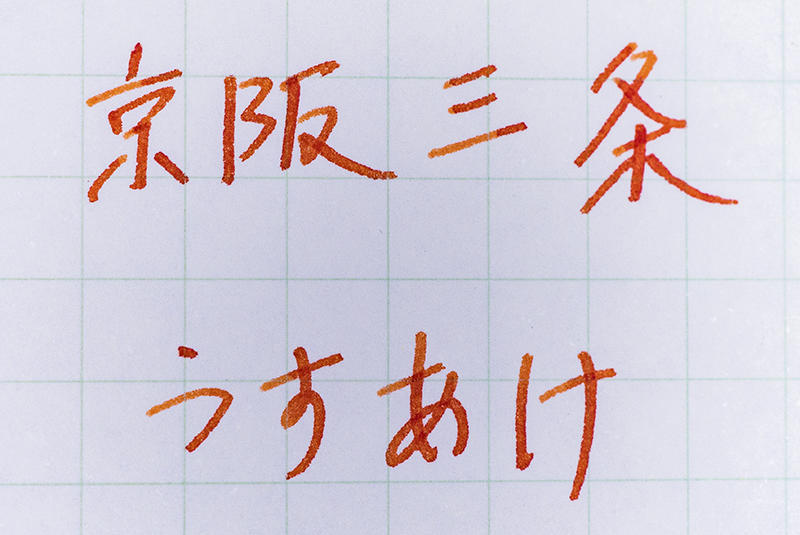 京阪三条
うすあけ